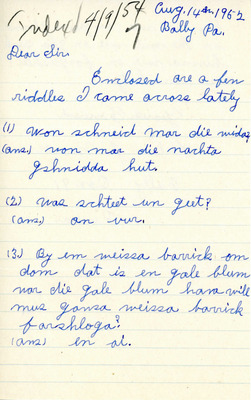 Index 4/9/54
Aug. 14th. 1952
Bally Pa.
Dear Sir.
Enclosed are a few
riddles I came across lately
(1) Won schneid mar die widas
(ans) won mar die nachta
gshnidda hut.
(2.) Was schteet un geet?
(ans,) an uur.
(3.) By em weissa barrick om
dom dat is en gale blum
war die gale blum hava will
mus gansa weissa barrick
farshloga?
(ans) en ai.